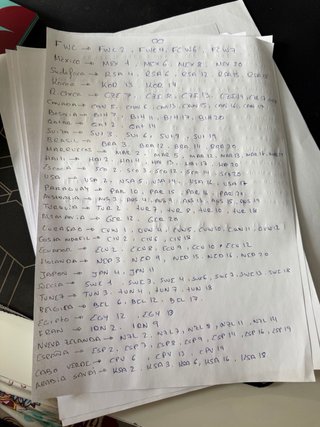 00
FWC → FWC 2, FWC 4, FCW6, FCW7
Mexico → MEX 1, MEX 6, MEX 8, MEX 20
Sudafrica → RSA 4, RSA 6, RSA 12, RSA 15,
Korea → KOR 13, KOR 14
R. Checa → CZE 7,
Canada → CAN 5, CAN 6, CAN 13, CAN 15, CAN 16, CAN 17
Bosnia → BIH 7, BIH 11, BIH 17, BIH 20
Qatar → QAT 3, QAT 14
Suiza → SUI 3, SUI 6, SUI 7, SUI 19
Brasil → BRA 3, BRA 12, BRA 14, BRA 20
Marruecos → MAR 2, MAR 5, MAR 12, MAR 13
Haiti → HAI 2, HAI 4, HAI 17, HAI 20
Escocia → SCO 2, SCO 12, SCO 14, SCO 20
USA → USA 2, USA 5, USA 14, USA 16, USA 17
Paraguay → PAR 10, PAR 15, PAR 16, PAR
Australia → AUS 3, AUS 15, AUS 19
Turquia → TUR 2, TUR 7, TUR 8, TUR 10, TUR 18
Alemania → GER 12, GER 20
Curasao → CUW 1, CUW 4, CUW 5, CUW 10, CUW 11, CUW 12
Costa Marfil → CIV 2, CIV 6, CIV 18
Ecuador → ECU 2, ECU 8, ECU 9, ECU 10, ECU 12
Holanda → NED 3, NED 9, NED 15, NED 16, NED 20
Japon → JPN 4, JPN 11
Suecia → SWE 1, SWE 3, SWE 4, SWE 6, SWE 7, SWE 13, SWE 18
Tunez → TUN 3, TUN 4, TUN 7, TUN 18
Belgica → BEL 6, BEL 12, BEL 17
Egipto → EGY 12, EGY 13
Iran → IRN 2, IRN 9
Nueva Zelanda → NZL 2, NZL 7, NZL 8, NZL 11, NZL 14
España → ESP 2, ESP 7, ESP 8, ESP 9, ESP 14, ESP 16, ESP 19
Cabo Verde → CPV 6, CPV 13, CPV 19
Arabia Saudi → KSA 2, KSA 3, KSA 6, KSA 16, KSA 18